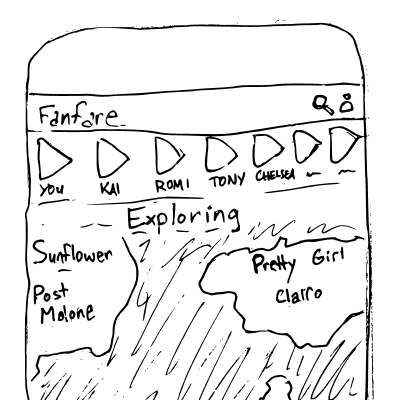 Fanfare
YOU KAI ROMI TONY CHELSEA
Exploring
Sunflower
Post
Malone
Pretty Girl
Clairo